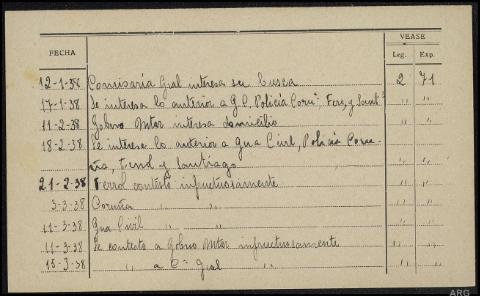 VEASE
FECHA Leg. Exp.
12-1-38 Comisaría Gral interesa su busca 2 71
17-1-38 Se interesa lo anterior a G.C. Policía Coruª Fer, y Santº " "
11-2-38 Gobno Mtor interesa domicilio " "
18-2-38 Se interesa lo anterior a Gua Civil, Policía Coru-
ña, Ferrol y Santiago " "
21-2-38 Ferrol contesto infructuosamente " "
3-3-38 Coruña " " " "
11-3-38 Gua Civil " " " "
11-3-38 Se contesto a Gobno Mtor infructuosamente " "
15-3-38 " a Cª Gral " " "
ARG